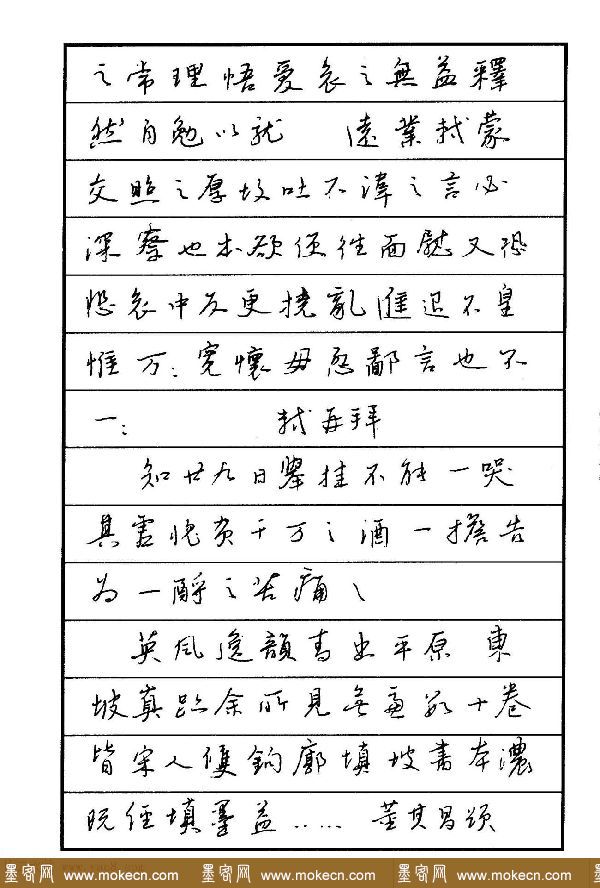 之常理悟憂哀之無益釋
然自勉以就 遠業軾蒙
交照之厚故吐不諱之言必
深察也本欲便往面慰又恐
悲哀中反更撓亂進退不皇
惟万:寬懷毋忽鄙言也不
一: 軾再拜
知廿九日舉挂不能一哭
其靈愧負千万之酒一擔告
為一酹之苦痛〻
英風逸韻書出平原 東
坡真跡余所見無慮數十卷
皆宋人雙鉤廓填坡書本濃
既經填墨益…… 董其昌頌
墨客网 www.mokecn.com 墨客网 www.mokecn.com 墨客网 www.mokecn.com